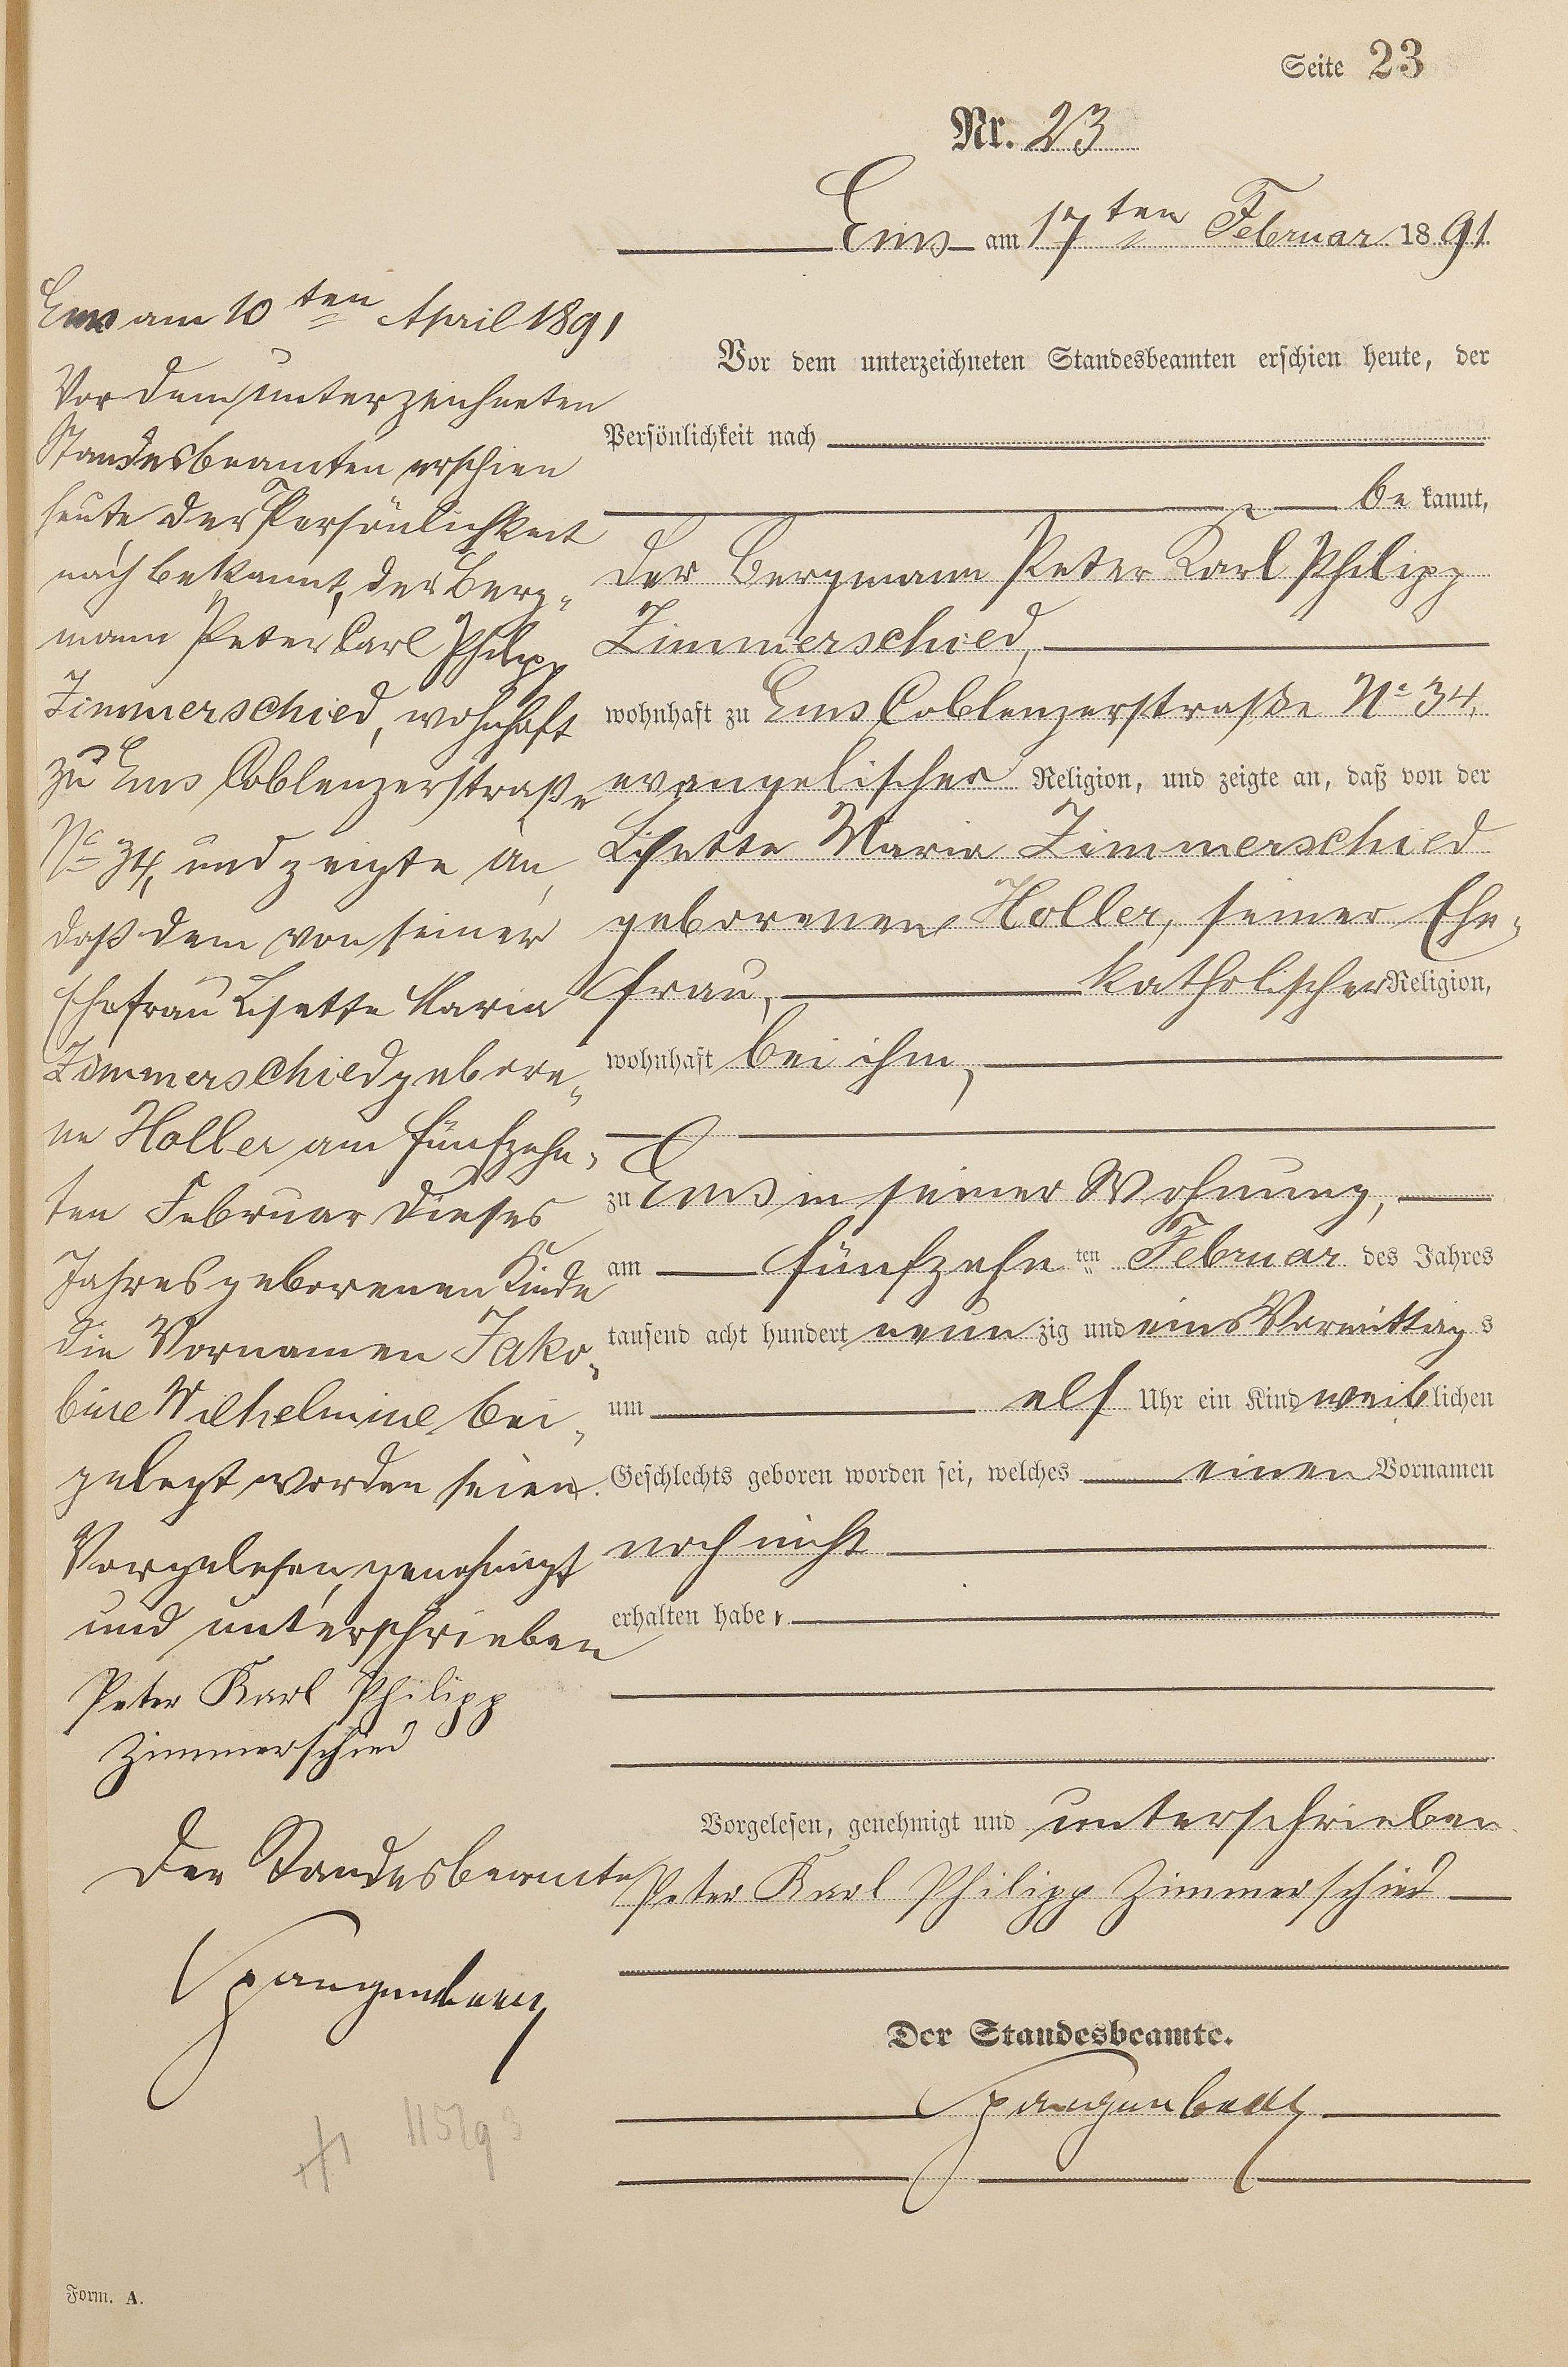 Seite 23
Nr. 23
Ems am 17ten Februar 1891.
Vor dem unterzeichneten Standesbeamten erschien heute, der
Persönlichkeit nach
be kannt,
der Bergmann Peter Karl Philipp
Zimmerschied,
wohnhaft zu Ems Coblenzerstraße No 34,
evangelischer Religion, und zeigte an, daß von der
Lisette Maria Zimmerschied
geborenen Holler, seiner Ehe-
frau, katholischer Religion,
wohnhaft bei ihm,
zu Ems in seiner Wohnung,
am fünfzehn ten Februar des Jahres
tausend acht hundert neun zig und eins Vormittag s
um elf Uhr ein Kind weib lichen
Geschlechts geboren worden sei, welches einen Vornamen
noch nicht
erhalten habe.
Vorgelesen, genehmigt und unterschrieben.
Peter Karl Philipp Zimmerschied
Der Standesbeamte.
Spangenberg
Ems am 10ten April 1891
Vor dem unterzeichneten
Standesbeamten erschien
heute der Persönlichkeit
nach bekannt, der Berg-
mann Peter Carl Philipp
Zimmerschied, wohnhaft
zu Ems Coblenzerstraße
No 34, und zeigte an,
daß dem von seiner
Ehefrau Lisette Maria
Zimmerschied gebore-
ne Holler am fünfzehn-
ten Februar dieses
Jahres geborenen Kinde
die Vornamen Jako-
bine Wilhelmine bei-
gelegt worden seien.
Vorgelesen, genehmigt
und unterschrieben
Peter Karl Philipp
Zimmerschied
Der Standesbeamte
Spangenberg
Form. A.